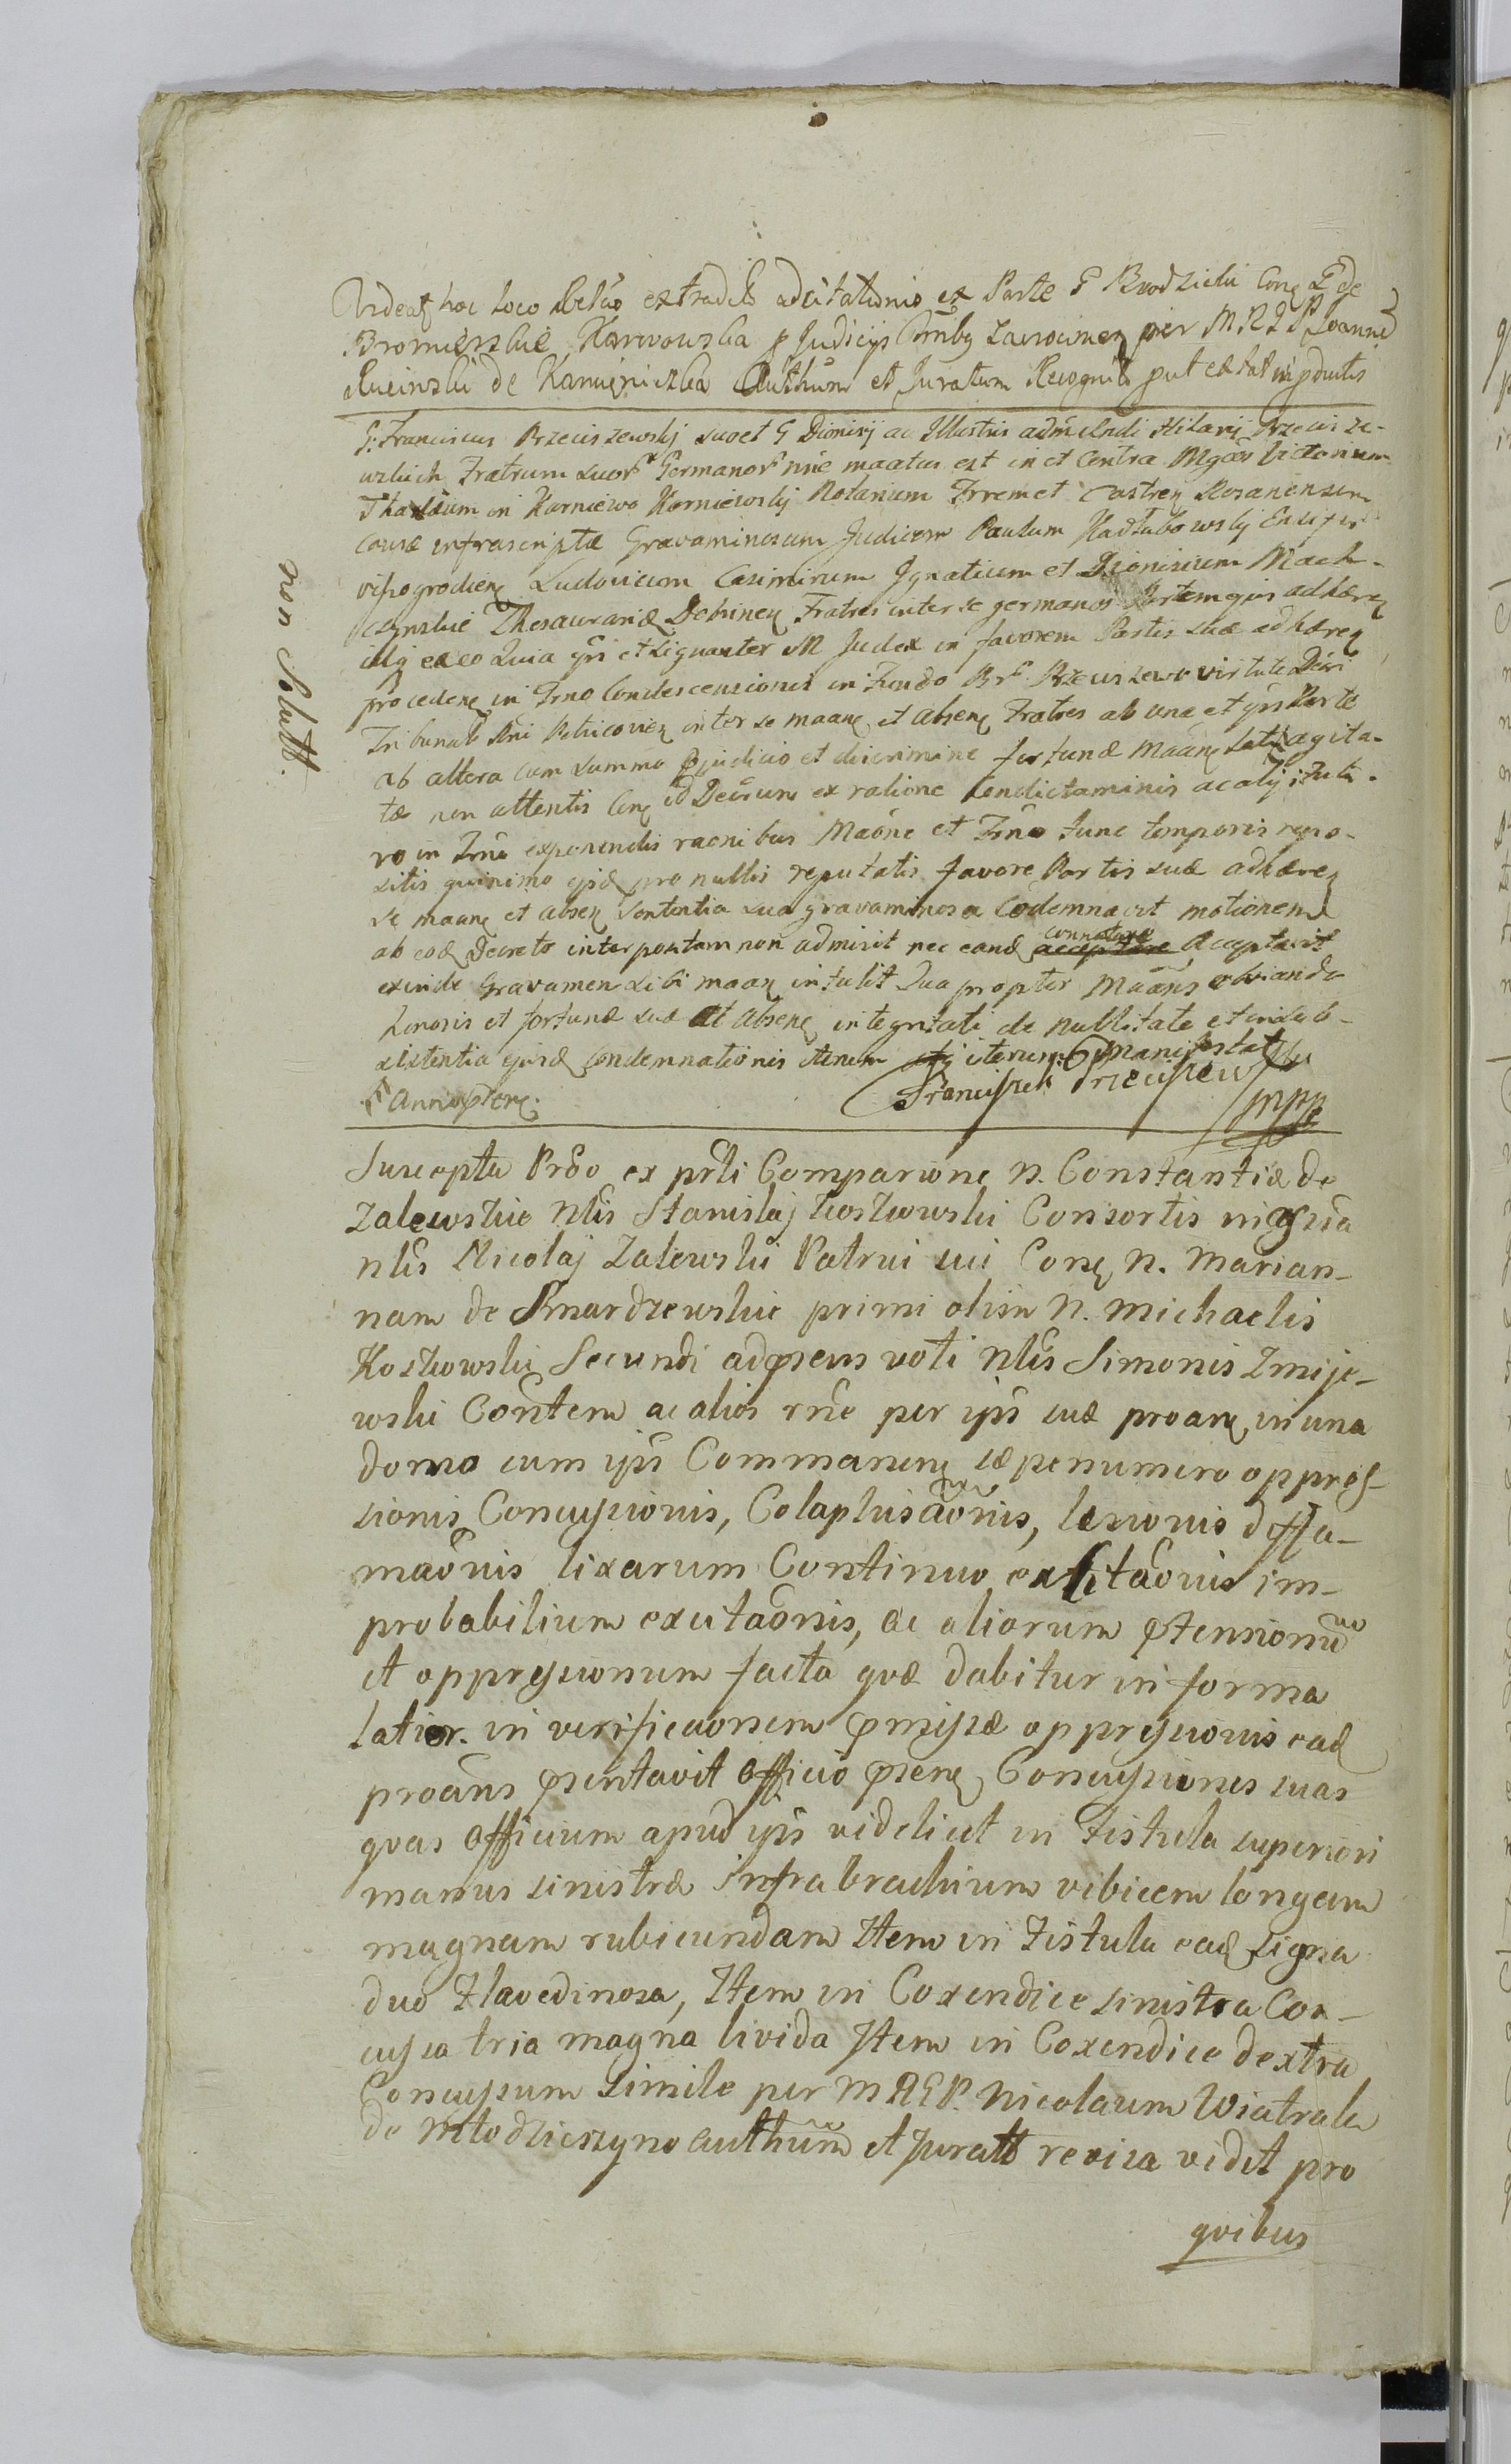 Ardeat hoc loco Relão extradit adcitationis ex Parte G Brodzicki Conq G de
Bromierskie Karwowska p Judicijs Cmbq per M R I P Joanne
Rucinski de Kamieniczka Authum et Juratum Recognit put extat in pductis
G: Franciscus Przeciszewskj suo et G Dionisij ac Illustris adm Rndi Hilarij Przecisze-
wskich Fratrum suor Germanor nne maatus est in et Contra Mgcos Victorinum
Thadæum in Karniewo Karniewskj Notarium Trremet Castren Rosanensem
causæ infrascriptæ Gravaminosum Judicem Paulum
Ludovicum Casimirum Ignatium et Dionisium Mach-
czynskie Thesaurariæ Dobrinen Fratres inter se germanos Partemqus adhæren
ex eo Quia ijsi et signanter M Judex in favorem Partis suæ adhæren
proceden in Trno Condescensionis in Fundo Przeciszewo virtute Decri
Tribunal Rni Petricovien inter se maan et absen Fratres ab una et ijsi Parte
ab altera cum summo pjudicio et discrimine fortunæ maan agita-
tæ non attentis Decrum ex ratione Condictaminis ac alij
ro in Trno exponendis raonibus Maone et Trno tunc temporis repo-
sitis quinimo ijsd pro nullis reputatis favore Partis suæ adhæren
se maan et absen sententia sua gravaminosa Codemnavit motionem
ab eod Decreto interpositam non admisit nec eand connotare acceptavit
exinde Gravamen sibi maan intulit Qua propter Maans obviando
honoris et fortunæ suæ et absen integritati de nullitate et insub-
sistentia ejusd Condemnationis iterum iterumq manifestat
Franciszek Przeciszewski
mpp
non solutt.
Suscepta Prõo ex prtti Comparione N. Constantiæ de
Zalewskie Nlis Stanislaj Koskowski Consortis in
nlis Nicolaj Zalewski Patrui sui Conq N. Marian-
nam de Smardzewskie primi olim N. Michaelis
Koskowski Secundi ad psens voti Nlis Simonis Zmije-
wski Contem ac alios rne per ijsi suæ proane in una
domo cum ijsi Commanen sæpenumero oppres-
sionis Concussionis, Colaphisaõnis, læsionis diffa-
maõnis lixarum Continuo im-
probabilium exutaõnis, ac aliorum ptensionu
et oppressionum facta quæ dabitur in forma
latior. in verificaonem pmissæ oppressionis ead
proãns psentavit Officio psen Concussiones suas
quas Officium apud ijsi videlicet in Fistula superiori
manus sinistræ infra brachium vibicem longam
magnam rubicundam Item in Fistula ead signa
duo Flavedinosa, Item in Coxendice sinistra Con-
cussa tria magna livida Item in Coxendice dextra
Concussum simile per M R G P. Nicolaum Wiatrak
de Mlodzieszyno authum et Juratt revisa vidit pro
quibus